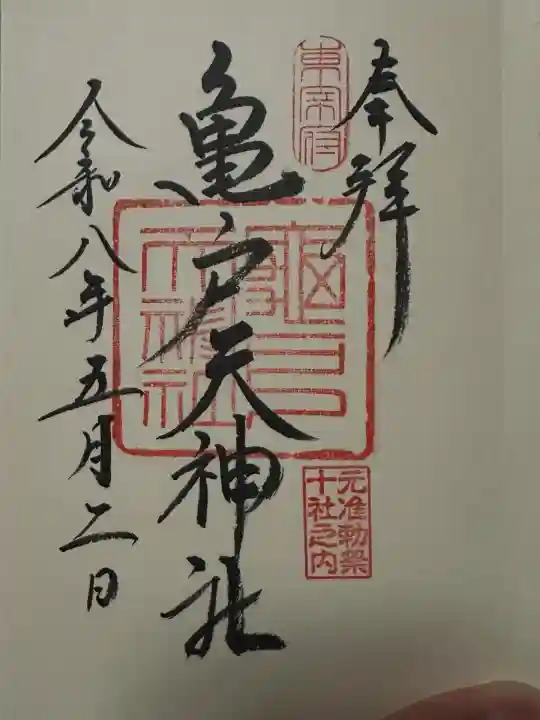 奉拝
東宰府
亀戸天神社
亀戸天神社
元准勅祭
十社之内
令和八年五月二日